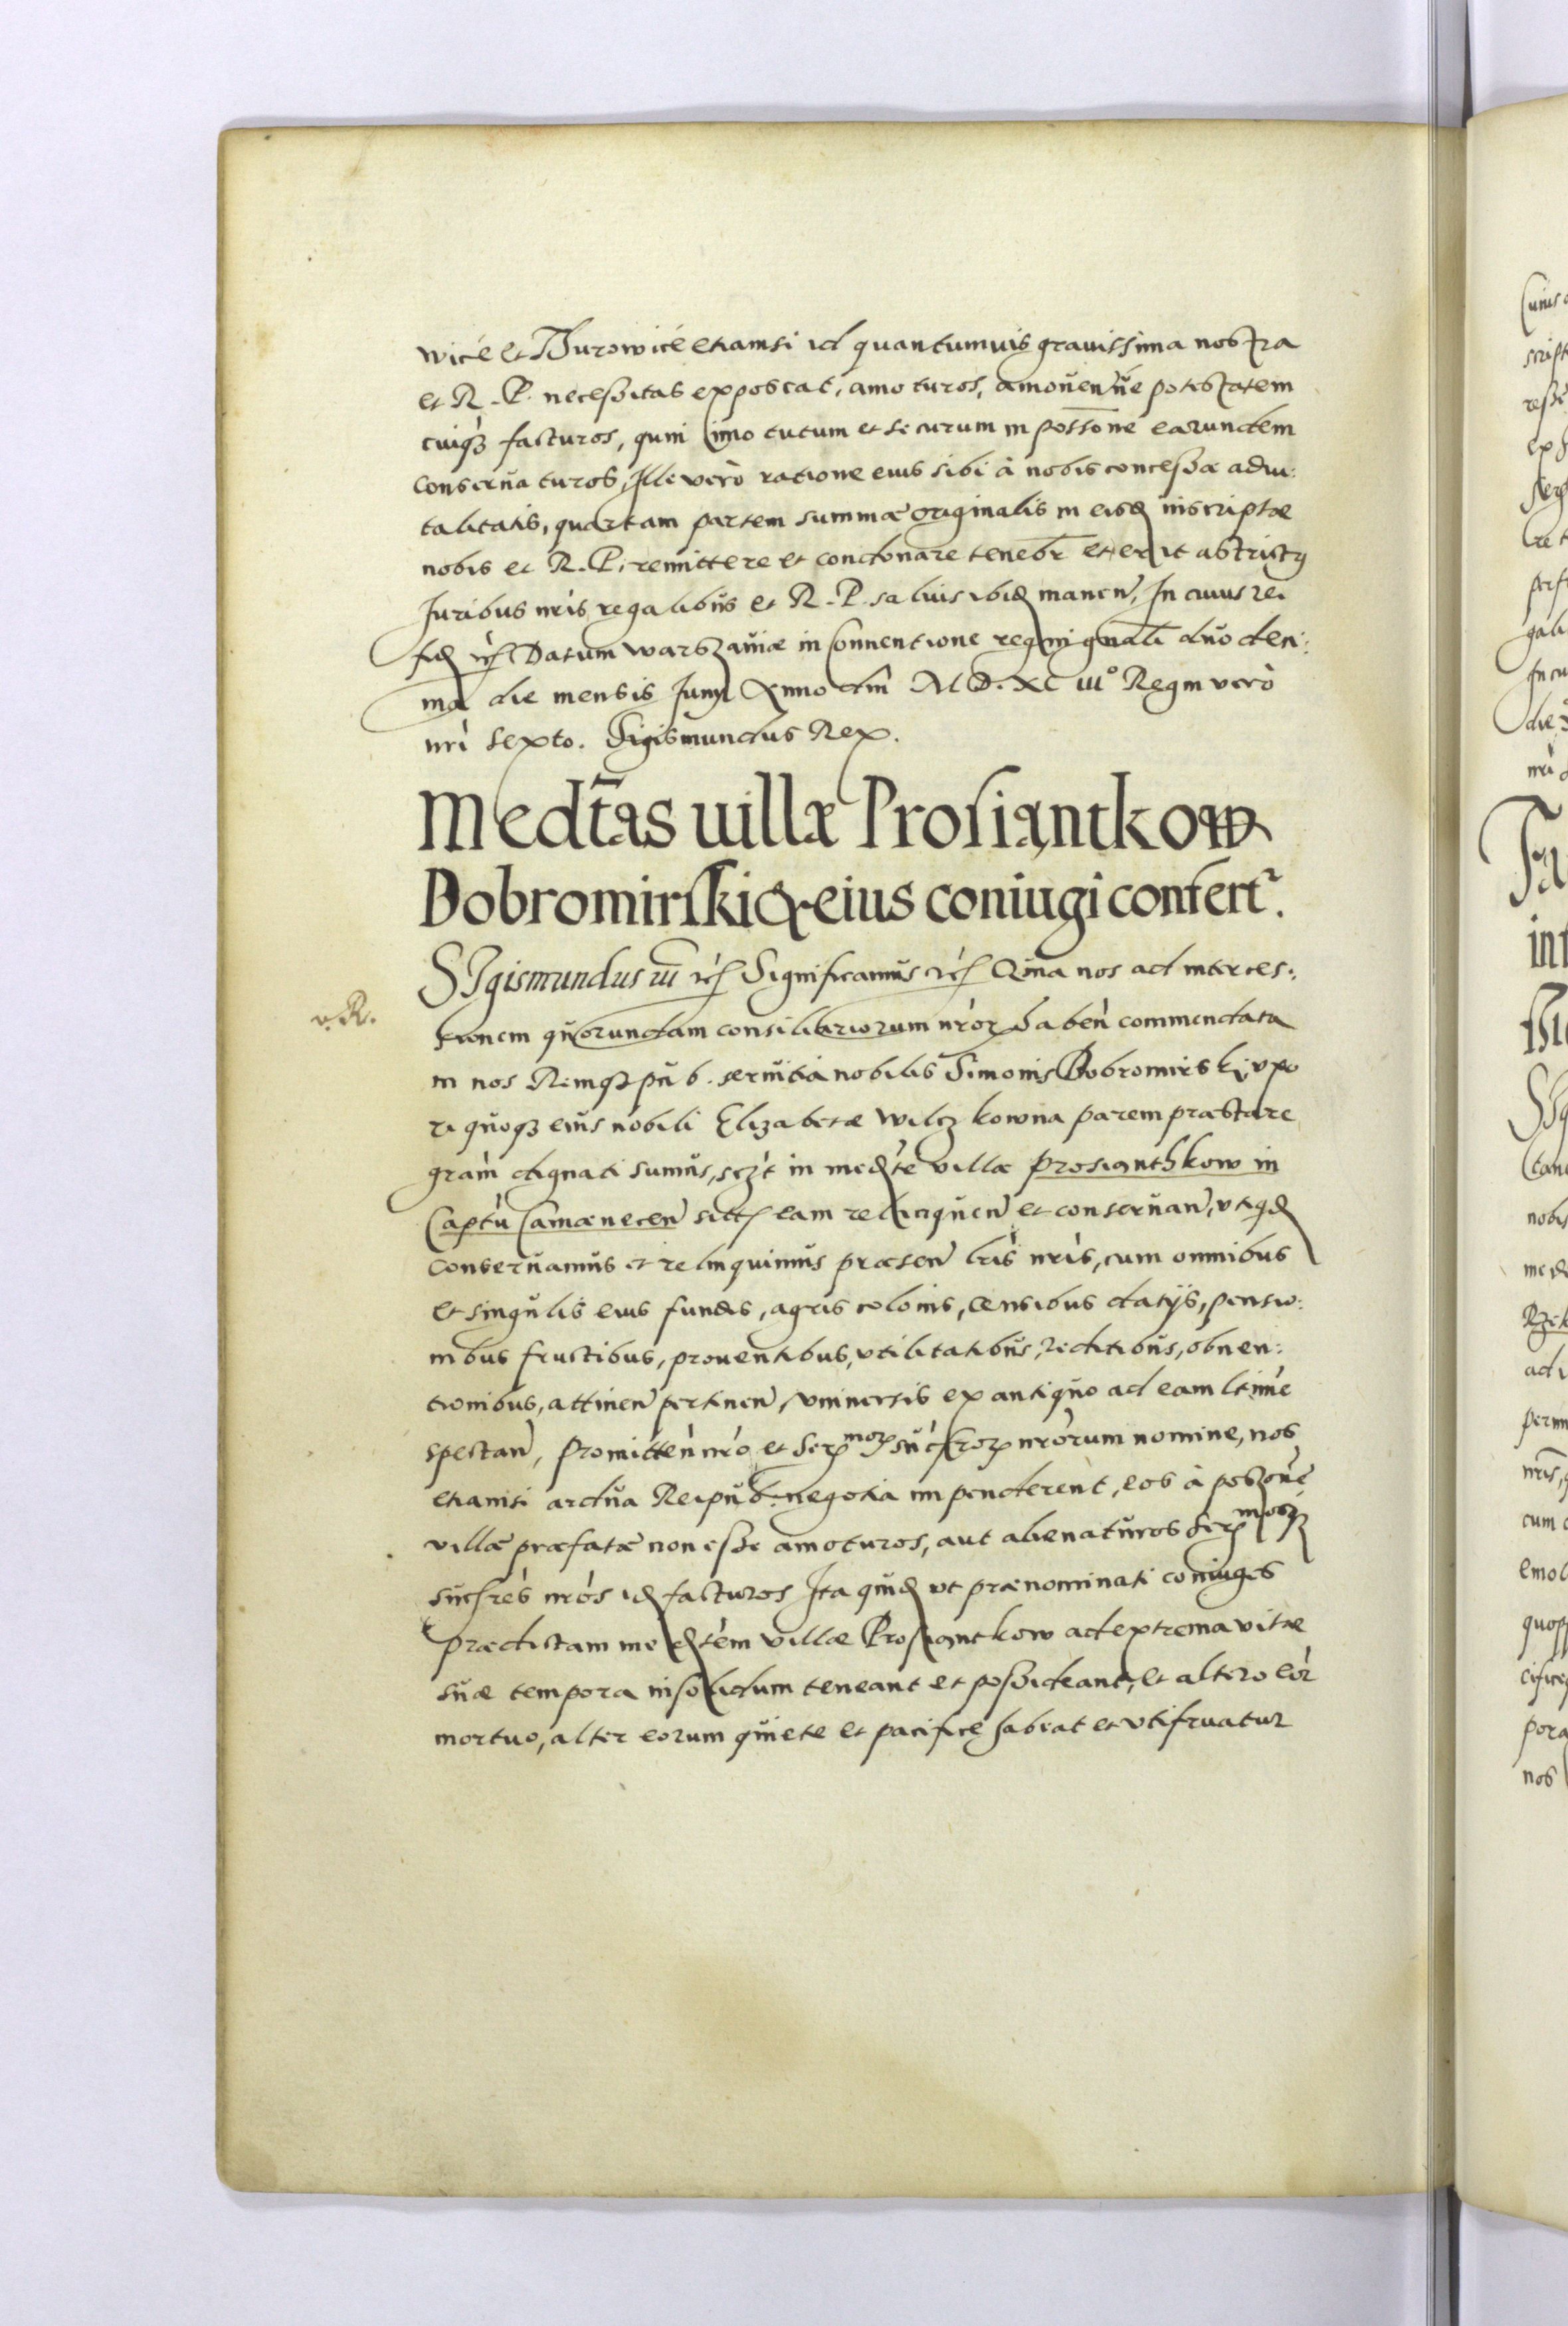 wice et Thurowice etiamsi id quantumuis grauissima nostra
et R. P. necessitas exposcat, amoturos, amouen̄ ue potestatem
cuiq3 facturos, quin imo tutum et securum in possōne earundem
conserŭaturos, Ille verò ratione eius sibi à nobis concessæ adui:
talitatis, quartam partem summæ originalis in eisd inscriptæ
nobis et R. P. remittere et condonare teneb̄r et erit astrictus
Iuribus nr̄is regalibŭs et R. P. saluis ibid manen̄, In cuius rei
fid etc Datum Warszauiæ in Conuentione regni gn̄ali dŭodeci:
ma die mensis Iunij Anno dn̄i M D. XC IIIº Regni verò
nr̄i sexto. Sigismundus Rex.
Medt̄as uillæ Prosiąntkow
Dobromirski & eius coniugi confertr.
SIgismundus iii etc Significamŭs etc Qm̄a nos ad interces:
sionem qŭorundam consiliariorum nr̄or haben̄ commendata
v. R.
in nos Remq3 pŭb. serŭitia nobilis Simonis Dobromirski, vxo
ri qŭoq3 eiŭs nobili Elizabetæ Wilczkowna parem præstare
gr̄am dignati sumŭs, scz̄t in medt̄e villæ Prosianthkow in
Captū Camænecen̄ sitt eam relinqŭen̄ et conserŭan̄, vtiqd
conserŭamŭs et relinquimŭs præsen̄ lr̄is nr̄is, cum omnibus
et singŭlis eius fundis, agris colonis, censibus datijs, pensio:
nibus fructibus, prouentibus, vtilitatibŭs, reditibŭs, obuen:
tionibus, attinen̄ pertinen̄, vniuersis ex antiqŭo ad eam ltim̄e
spectan̄, Promitten̄ nr̄o et Ser mor sŭc̄sror nr̄orum nomine, nos
etiamsi ardŭa Reipŭb. negotia impenderent, eos à possōne
villæ præfatæ non esse amoturos, aut alienatŭros Ser mosq3
sŭcs̄res nr̄os id facturos Ita qŭid vt prænominati coniuges
prædictam medt̄em villæ Prosiantkow ad extrema vitæ
sŭæ tempora insolidum teneant et possideant, et altero eor̄
mortuo, alter eorum qŭiete et pacifice habeat et vtifruatur